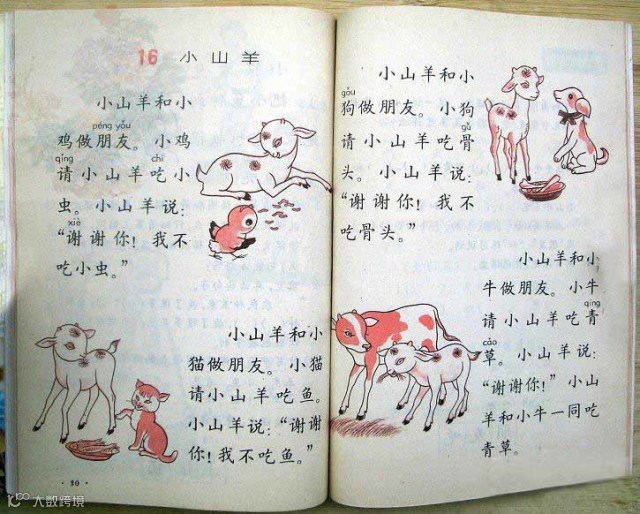 16 小山羊
小山羊和小
péng yǒu
鸡做朋友。小鸡
qǐng chī
请小山羊吃小
虫。小山羊说：
xiè
“谢谢你！我不
吃小虫。”
小山羊和小
猫做朋友。小猫
请小山羊吃鱼。
小山羊说：“谢谢
你！我不吃鱼。”
·30·
小山羊和小
gǒu
狗做朋友。小狗
gǔ
请小山羊吃骨
头。小山羊说：
“谢谢你！我不
吃骨头。”
小山羊和小
牛做朋友。小牛
qīng
请小山羊吃青
cǎo
草。小山羊说：
“谢谢你！”小山
羊和小牛一同吃
青草。
大数跨境